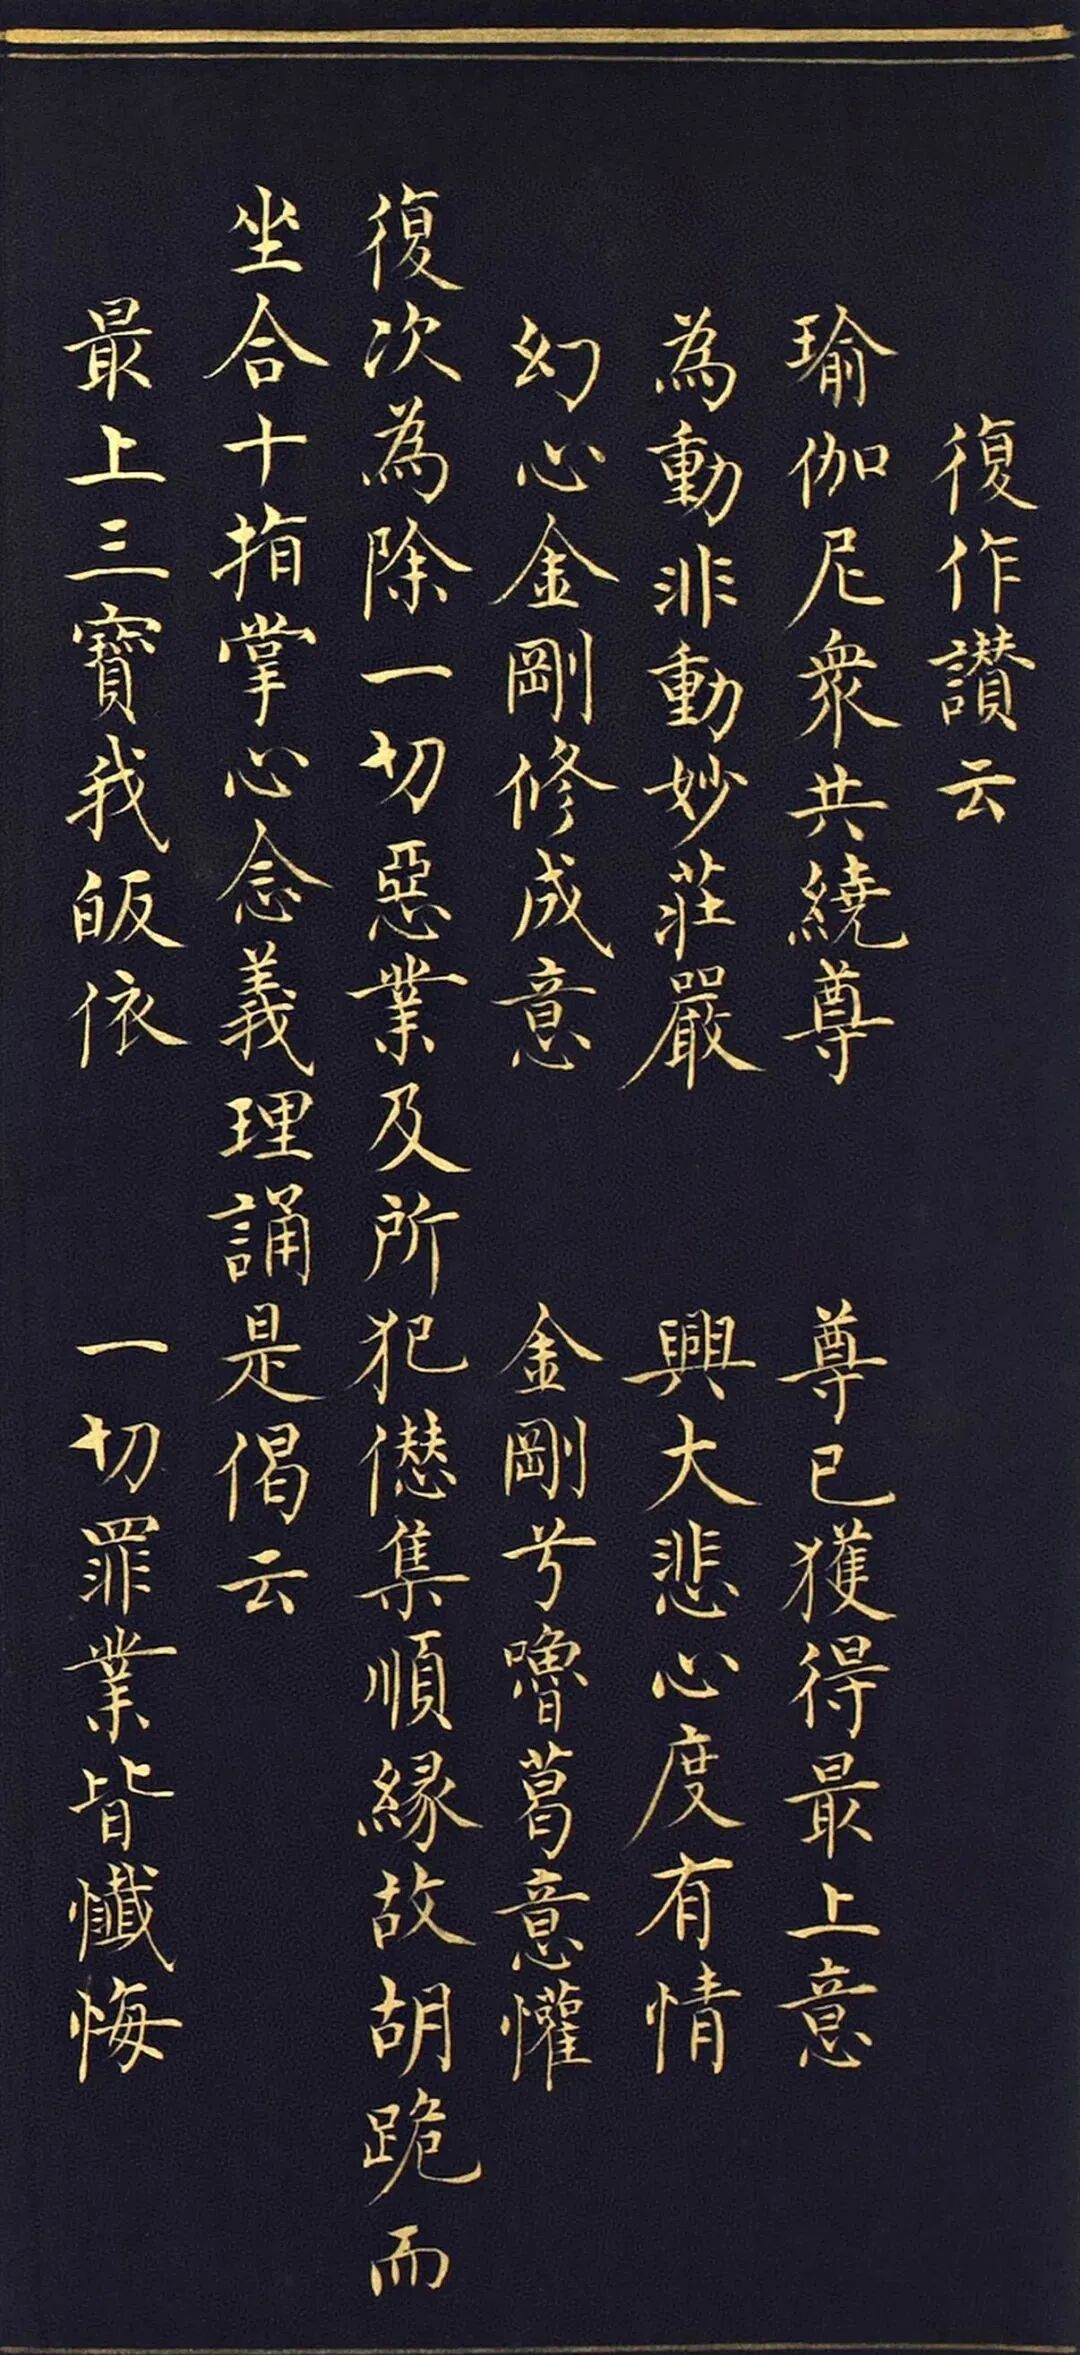 復作讃云
瑜伽尼衆共繞尊　尊已獲得最上意
為動非動妙莊嚴　興大悲心度有情
幻心金剛修成意　金剛兮嚕葛意懽
復次為除一切惡業及所犯僁集順緣故胡跪而
坐合十指掌心念義理誦是偈云
最上三寶我皈依　一切罪業皆懺悔